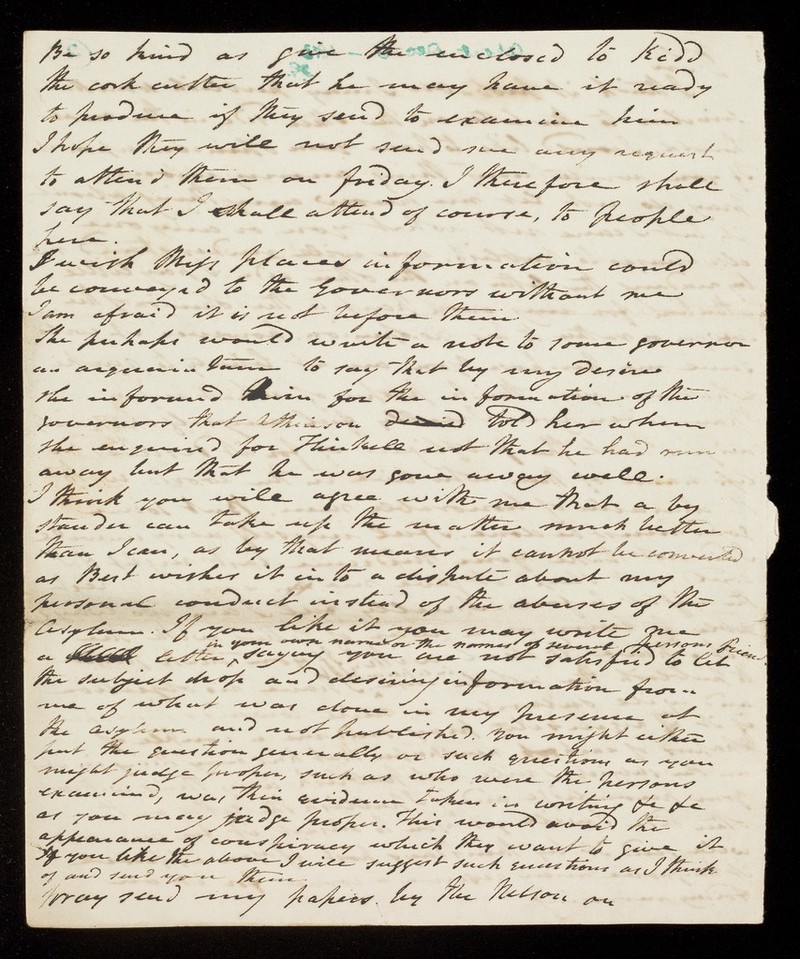 Be so kind as give the enclosed to Kidd
the cork cutter that he may have it ready
to produce if they send to examine him
I hope they will not send me any request
to attend them on friday. I therefore shall
say that I shall attend of course, to people
here.
I wish Miss Places information could
be conveyed to the Governors without me
I am afraid it is not before them
She perhaps would write a note to some governor
an acquaintance to say that by my desire
she informed him for the information of the
governors that Atkinson denied told her when
she enquired for Thirkell not that he had run
away but that he was gone away well.
I think you will agree with me that a by
stander can take up the matter much better
than I can, as by that means it cannot be converted
as Best wishes it into a dispute about my
personal conduct instead of the abuses of the
Asylum. If you like it you may write me
in your own name or the names of several persons
a letter, saying you are not satisfied to let
the subject drop and desiring information from
me of what was done in my presence at
the Asylum and not published. You might either
put the question generally or such questions as you
might judge proper, such as who were the persons
examined, was their evidence taken in writing &c &c
as you may judge proper. This would avoid the
appearance of conspiracy which they want to give it
If you like the above I will suggest such questions as I think
of and send you them
pray send my papers by the Nelson on